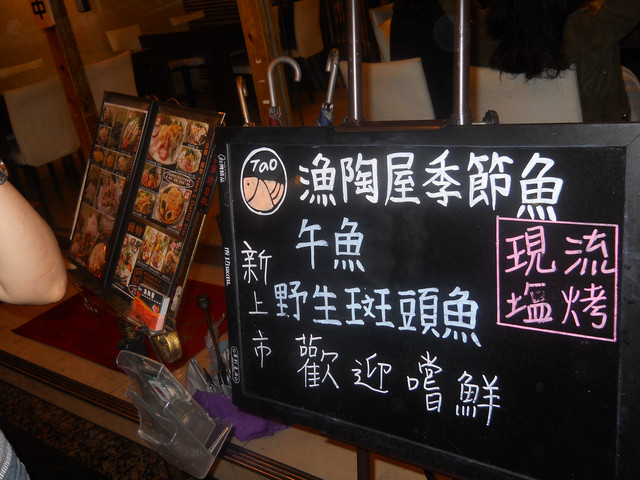 中
Tao
漁陶屋季節魚
午魚
野生斑頭魚
歡迎嚐鮮
新上市
現流
塩烤